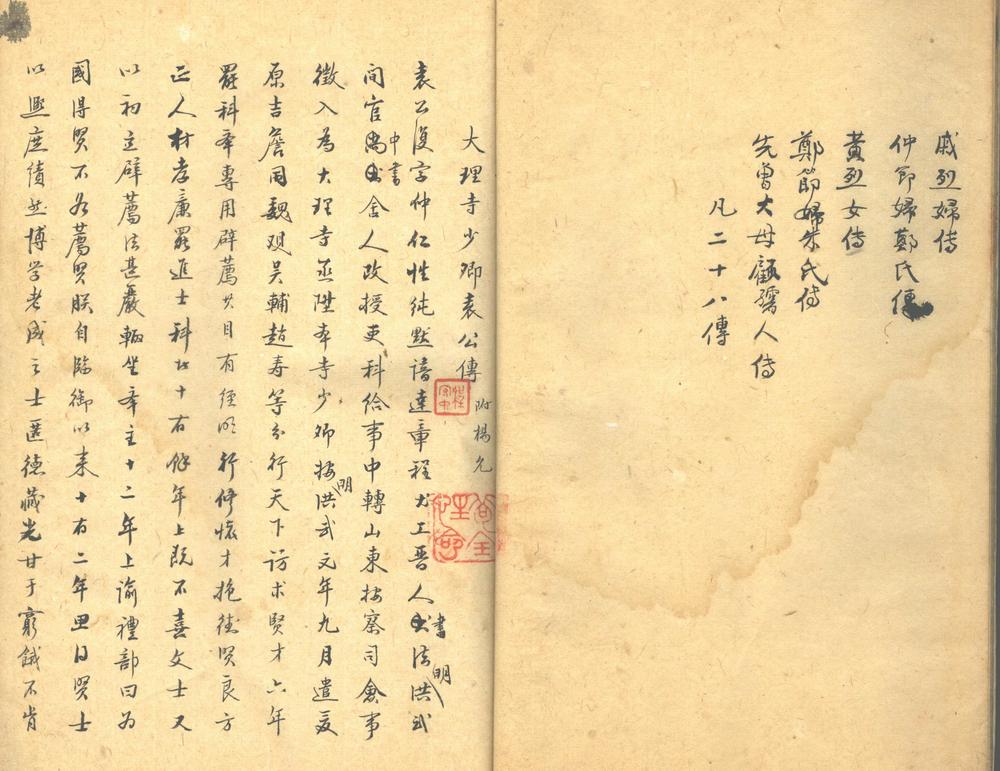 戚烈婦傳
仲節婦鄭氏傳
黃烈女傳
鄭節婦朱氏傳
先曾大母顧孺人傳
凡二十八傳
大理寺少卿袁公傳 附楊允
袁公復字仲仁性純默諳達章程尤工晉人書法明洪武
間官中書舍人改授吏科給事中轉山東按察司僉事
徵入為大理寺丞陞本寺少卿按明洪武元年九月遣夏
原吉詹同魏观吴輔趙寿等分行天下訪求賢才六年
罷科举專用辟薦其目有經明行修懷才抱德賢良方
正人材孝廉罷進士科攷十有餘年上既不喜文士又
以初立辟薦法甚嚴輒坐举主十二年上諭禮部曰为
國得賢不如薦賢朕自臨御以来十有二年思得賢士
以熙庶績然博学老成之士匿德藏光甘于窮餓不肯